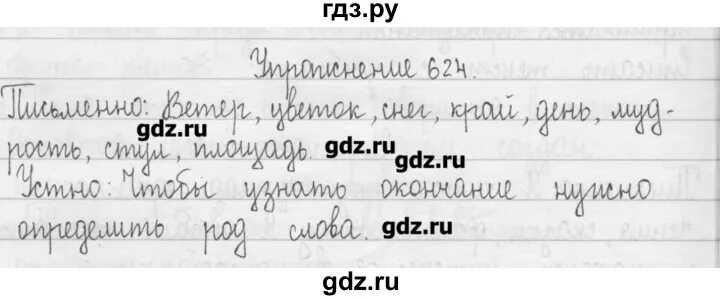 гдз.ру
Упражнение 624.
Письменно: Ветер, цветок, снег, край, день, муд-
gdz.ru
gdz.ru
рость, стул, площадь.
Устно: Чтобы узнать окончание нужно
определить род слова.
gdz.ru
gdz.ru